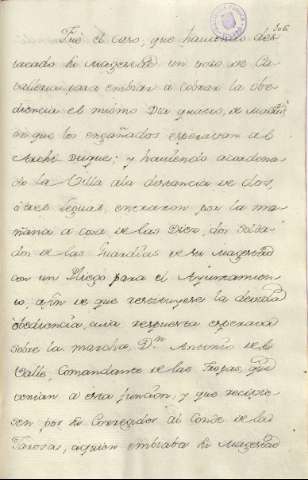 306
Fué el caso, que haviendo des-
tacado Su Magestad un trozo de Ca-
valleria para embiar a cobrar la obe-
diencia el mismo Dia quatro, de Madrid
en que los engañados esperavan al
Archi Duque; y haviendo acordona-
do la Villa ala distancia de dos,
ó tres leguas, entraron por la ma-
ñana a cosa de las Diez, dos Solda-
dos de las Guardias de su Magestad
con un Pliego para el Ayuntamien-
to, a fin de que restituyese la devida
obediencia, cuia respuesta esperava
sobre la marcha, Dn. Antonio de el
Valle, Comandante de las Tropas, que
venian a esta funcion; y que recivie-
sen por su Corregidor al Conde de las
Torres, a quien embiaba Su Magestad